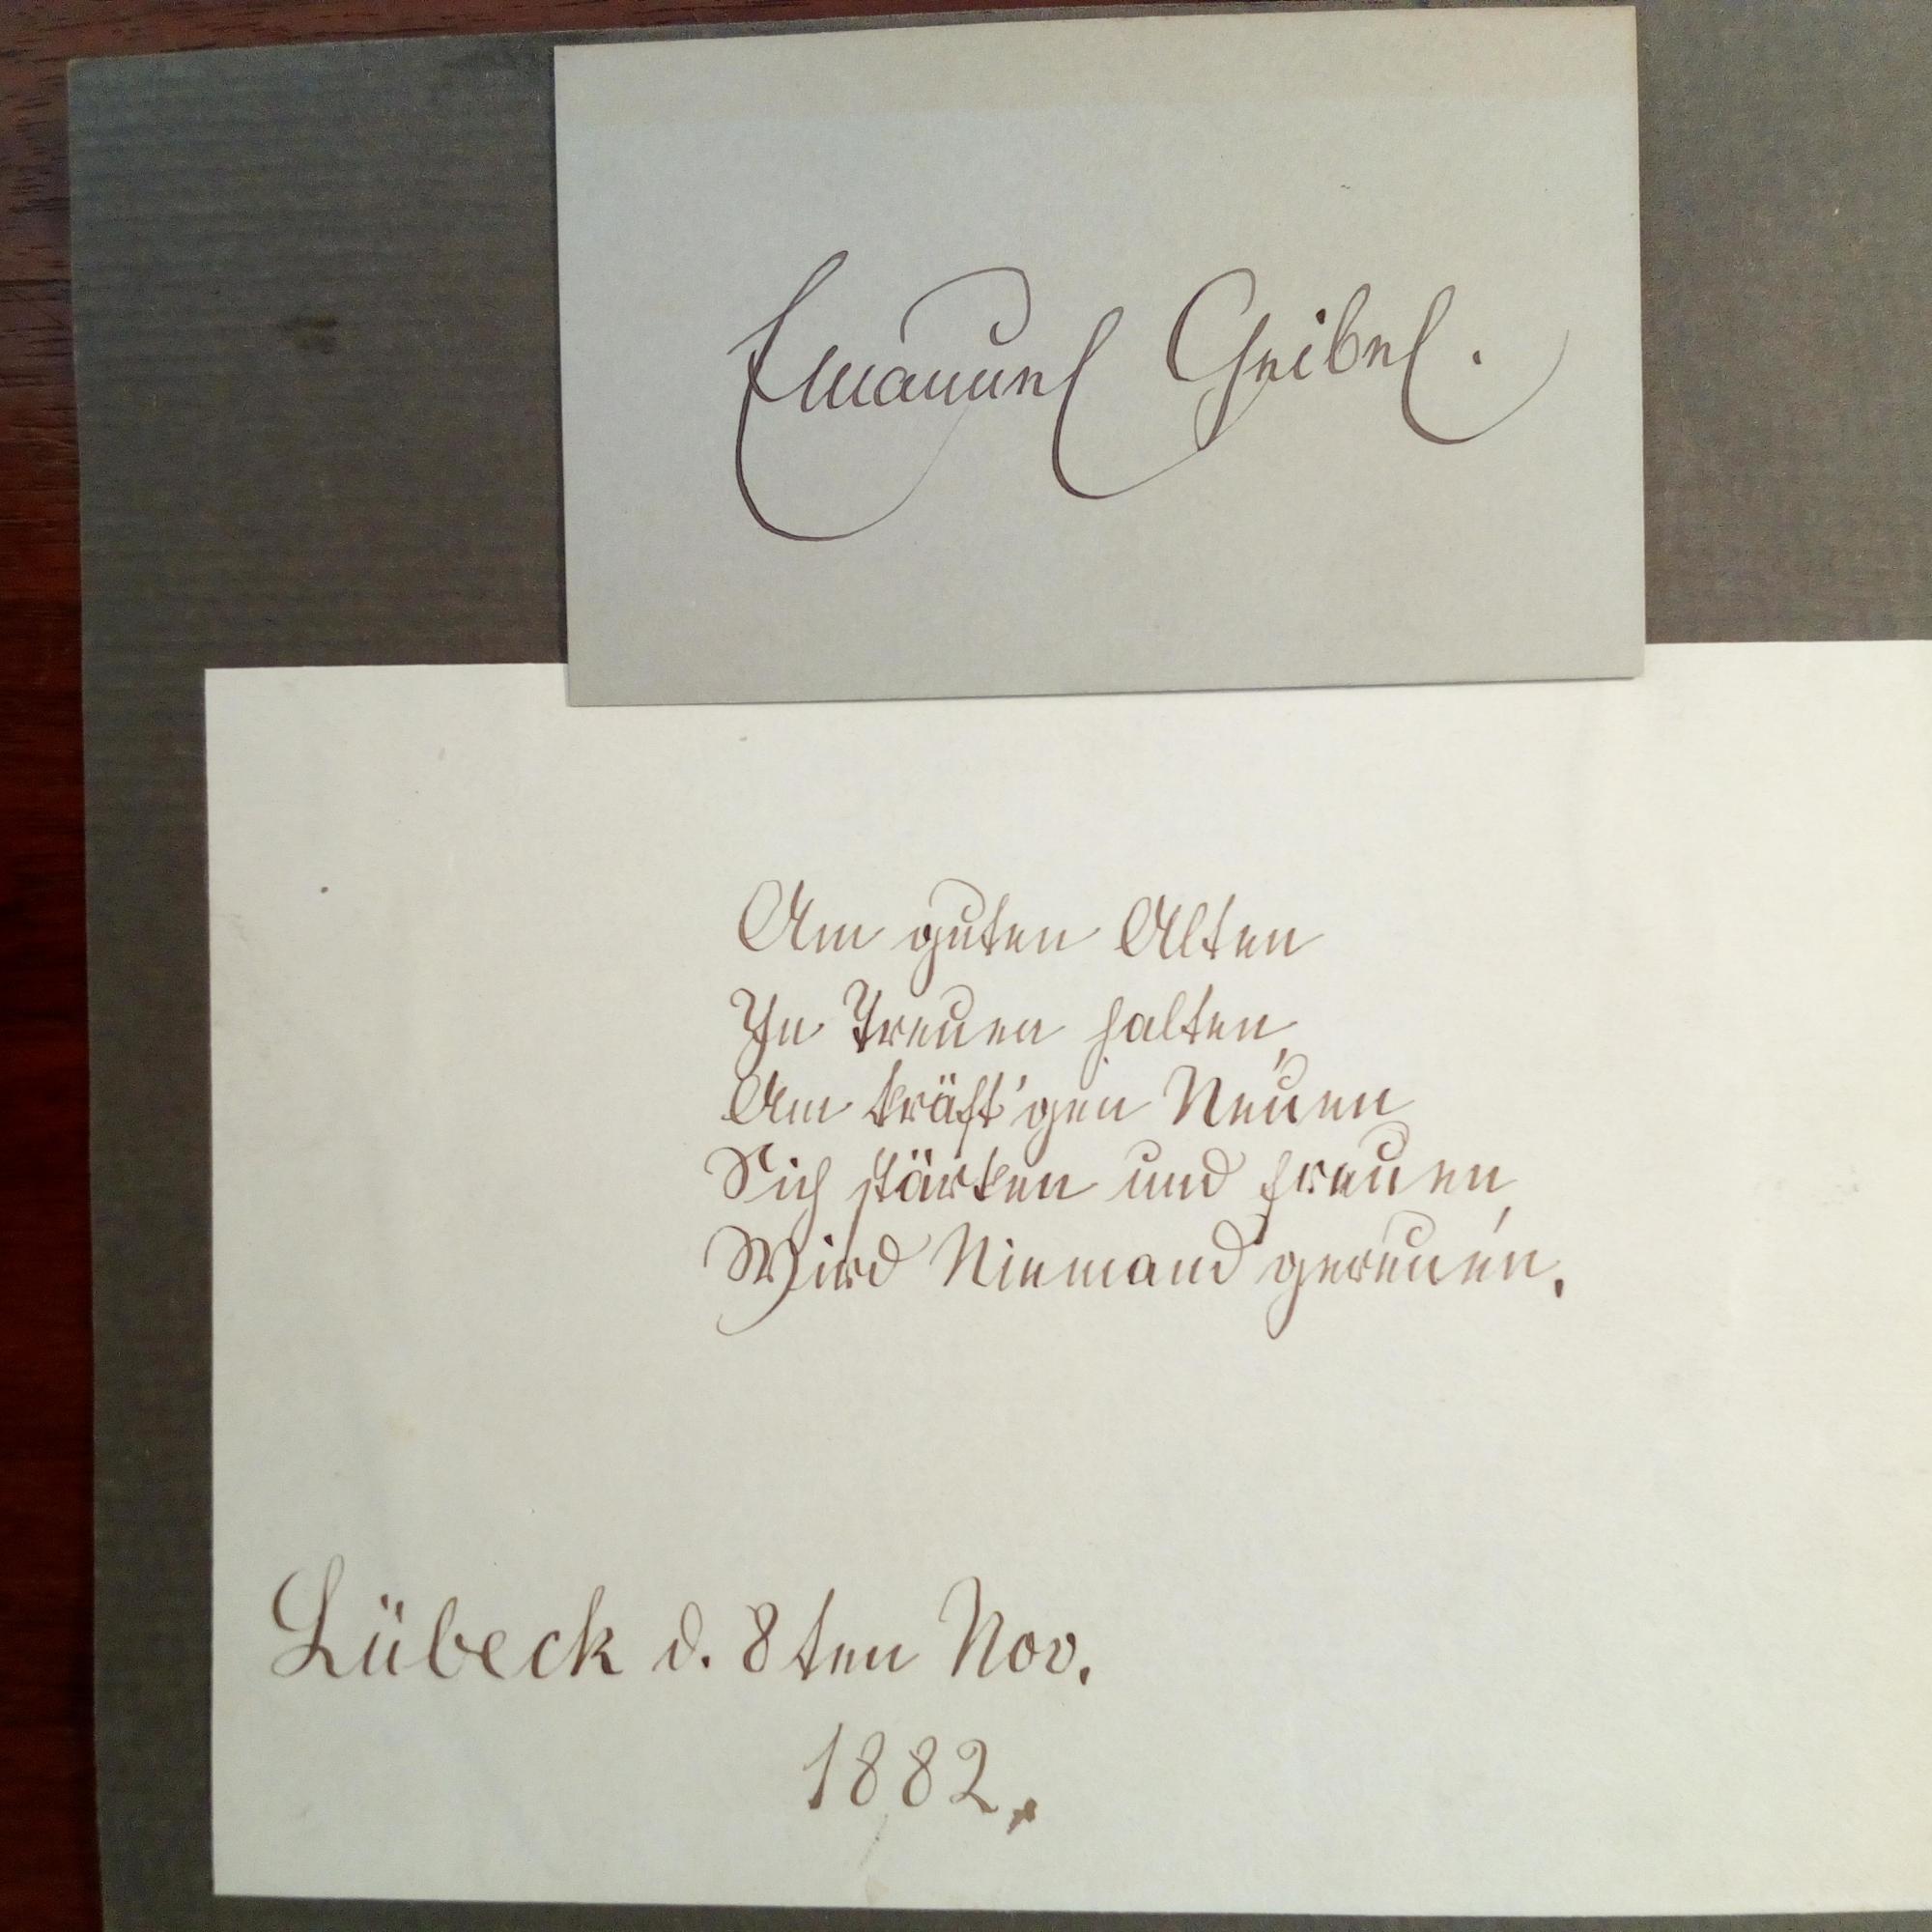 Emanuel Geibel.
Am guten Alten
In Treuen halten,
Am kräft'gen Neuen
Sich stärken und freuen,
Wird Niemand gereuen.
Lübeck d. 8ten Nov.
1882.